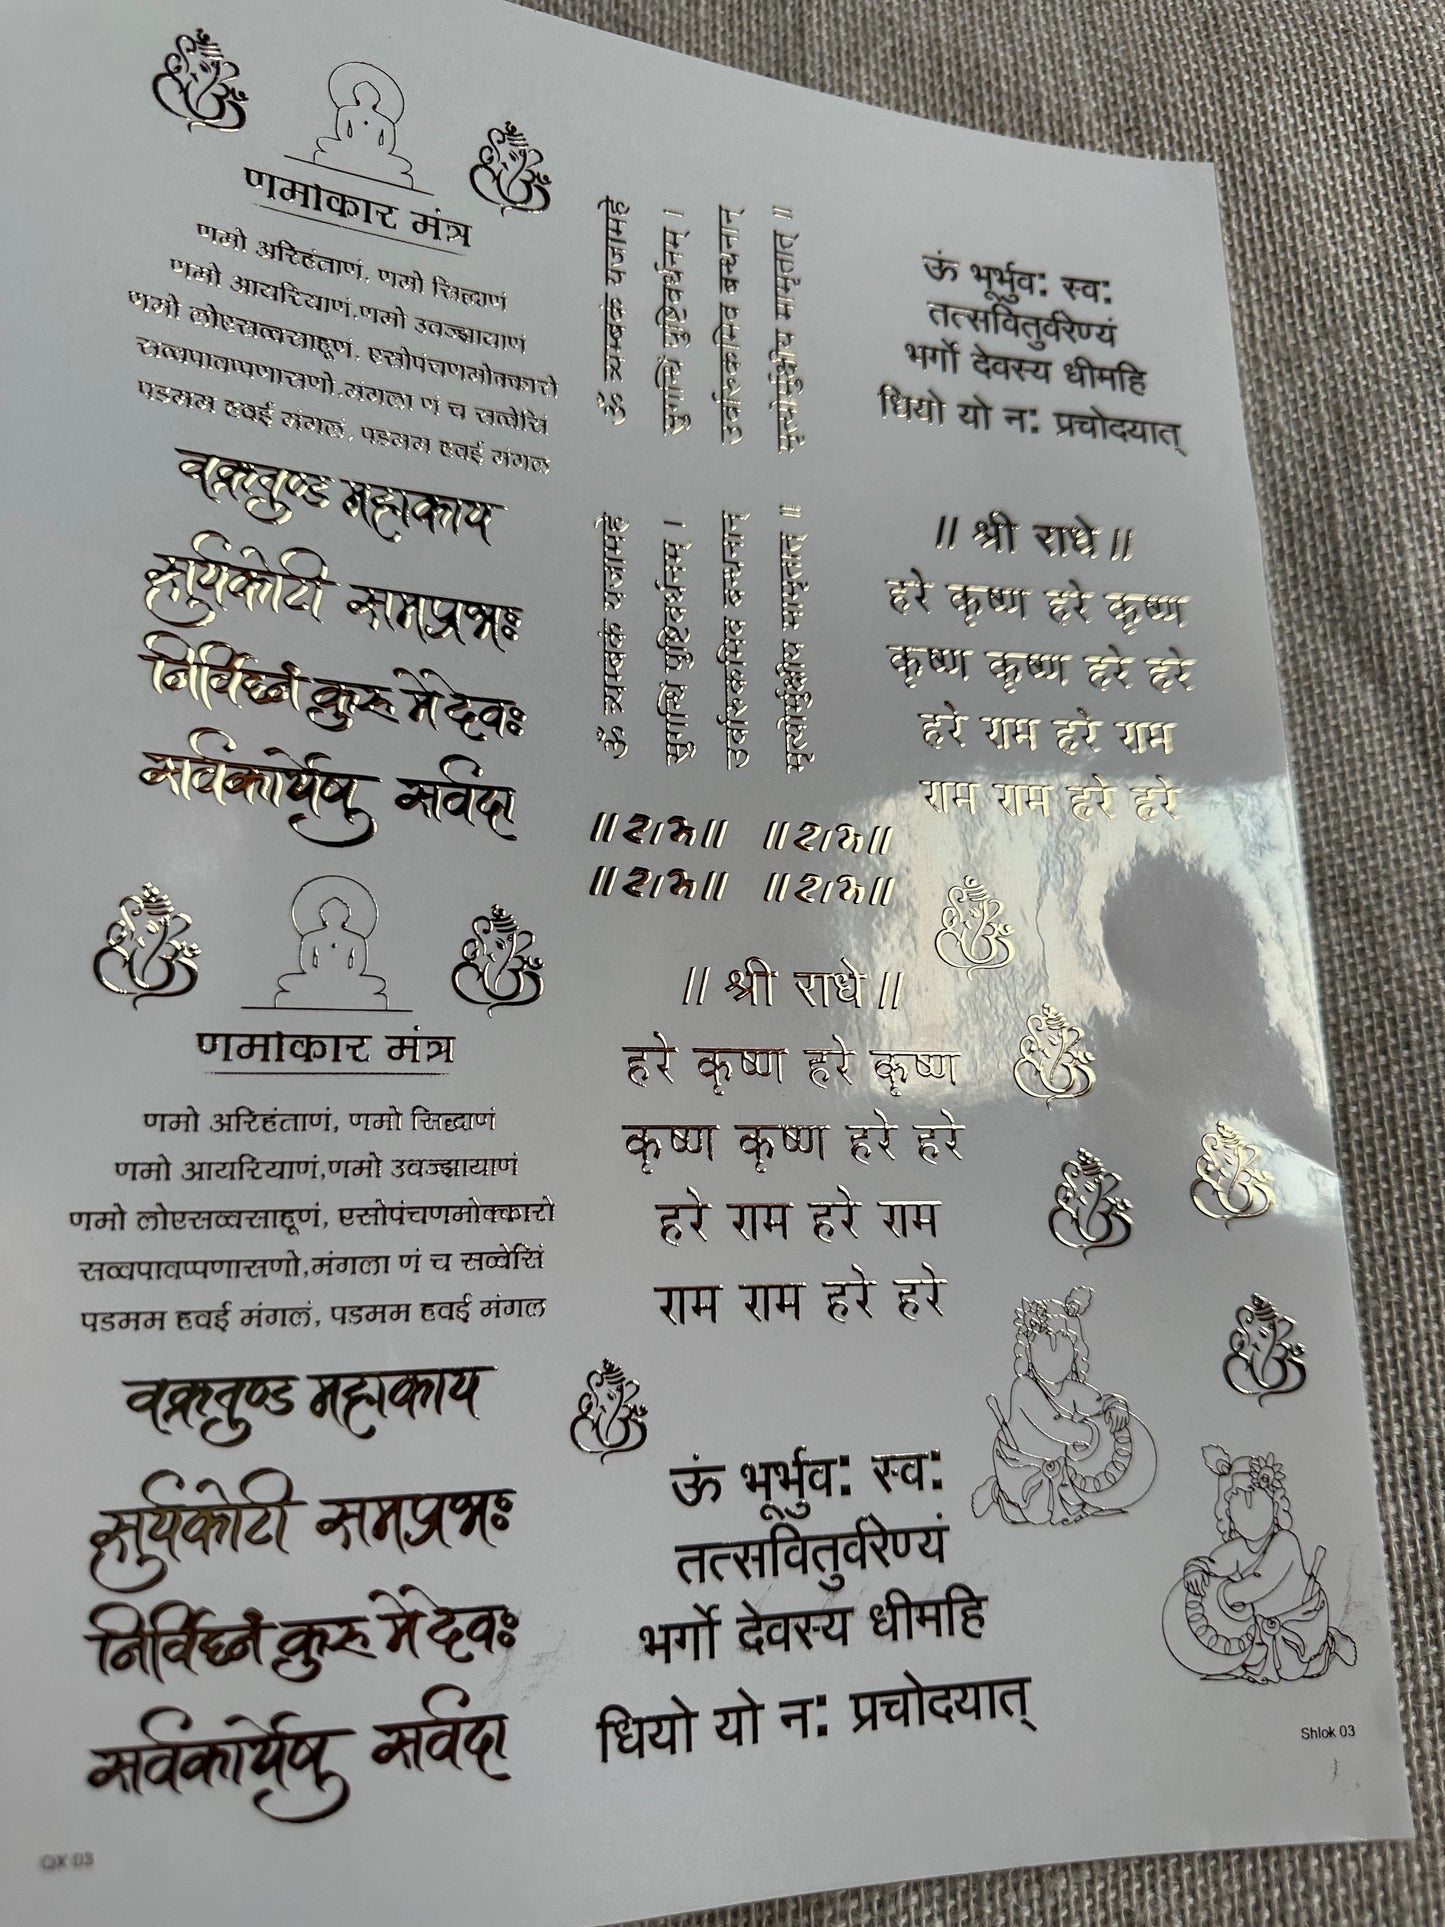 णमोकार मंत्र
णमो अरिहंताणं, णमो सिद्धाणं
णमो आयरियाणं,णमो उवज्झायाणं
णमो लोएसव्वसाहूणं, एसोपंचणमोक्कारो
सव्वपावप्पणासणो,मंगला णं च सव्वेसिं
पडमम हवई मंगलं, पडमम हवई मंगल
वक्रतुण्ड महाकाय
सुर्यकोटी समप्रभः
निर्विघ्नं कुरु मे देवः
सर्वकार्येषु सर्वदा
ॐ त्र्यम्बकं यजामहे
सुगन्धिं पुष्टिवर्धनम् ।
उर्वारुकमिव बन्धनान्
मृत्योर्मुक्षीय मामृतात् ॥
ॐ त्र्यम्बकं यजामहे
सुगन्धिं पुष्टिवर्धनम् ।
उर्वारुकमिव बन्धनान्
मृत्योर्मुक्षीय मामृतात् ॥
ऊं भूर्भुव: स्व:
तत्सवितुर्वरेण्यं
भर्गो देवस्य धीमहि
धियो यो न: प्रचोदयात्
॥ श्री राधे ॥
हरे कृष्ण हरे कृष्ण
कृष्ण कृष्ण हरे हरे
हरे राम हरे राम
राम राम हरे हरे
॥राम॥ ॥राम॥
॥राम॥ ॥राम॥
णमोकार मंत्र
णमो अरिहंताणं, णमो सिद्धाणं
णमो आयरियाणं,णमो उवज्झायाणं
णमो लोएसव्वसाहूणं, एसोपंचणमोक्कारो
सव्वपावप्पणासणो,मंगला णं च सव्वेसिं
पडमम हवई मंगलं, पडमम हवई मंगल
वक्रतुण्ड महाकाय
सुर्यकोटी समप्रभः
निर्विघ्नं कुरु मे देवः
सर्वकार्येषु सर्वदा
॥ श्री राधे ॥
हरे कृष्ण हरे कृष्ण
कृष्ण कृष्ण हरे हरे
हरे राम हरे राम
राम राम हरे हरे
ऊं भूर्भुव: स्व:
तत्सवितुर्वरेण्यं
भर्गो देवस्य धीमहि
धियो यो न: प्रचोदयात्
Shlok 03
QX 03